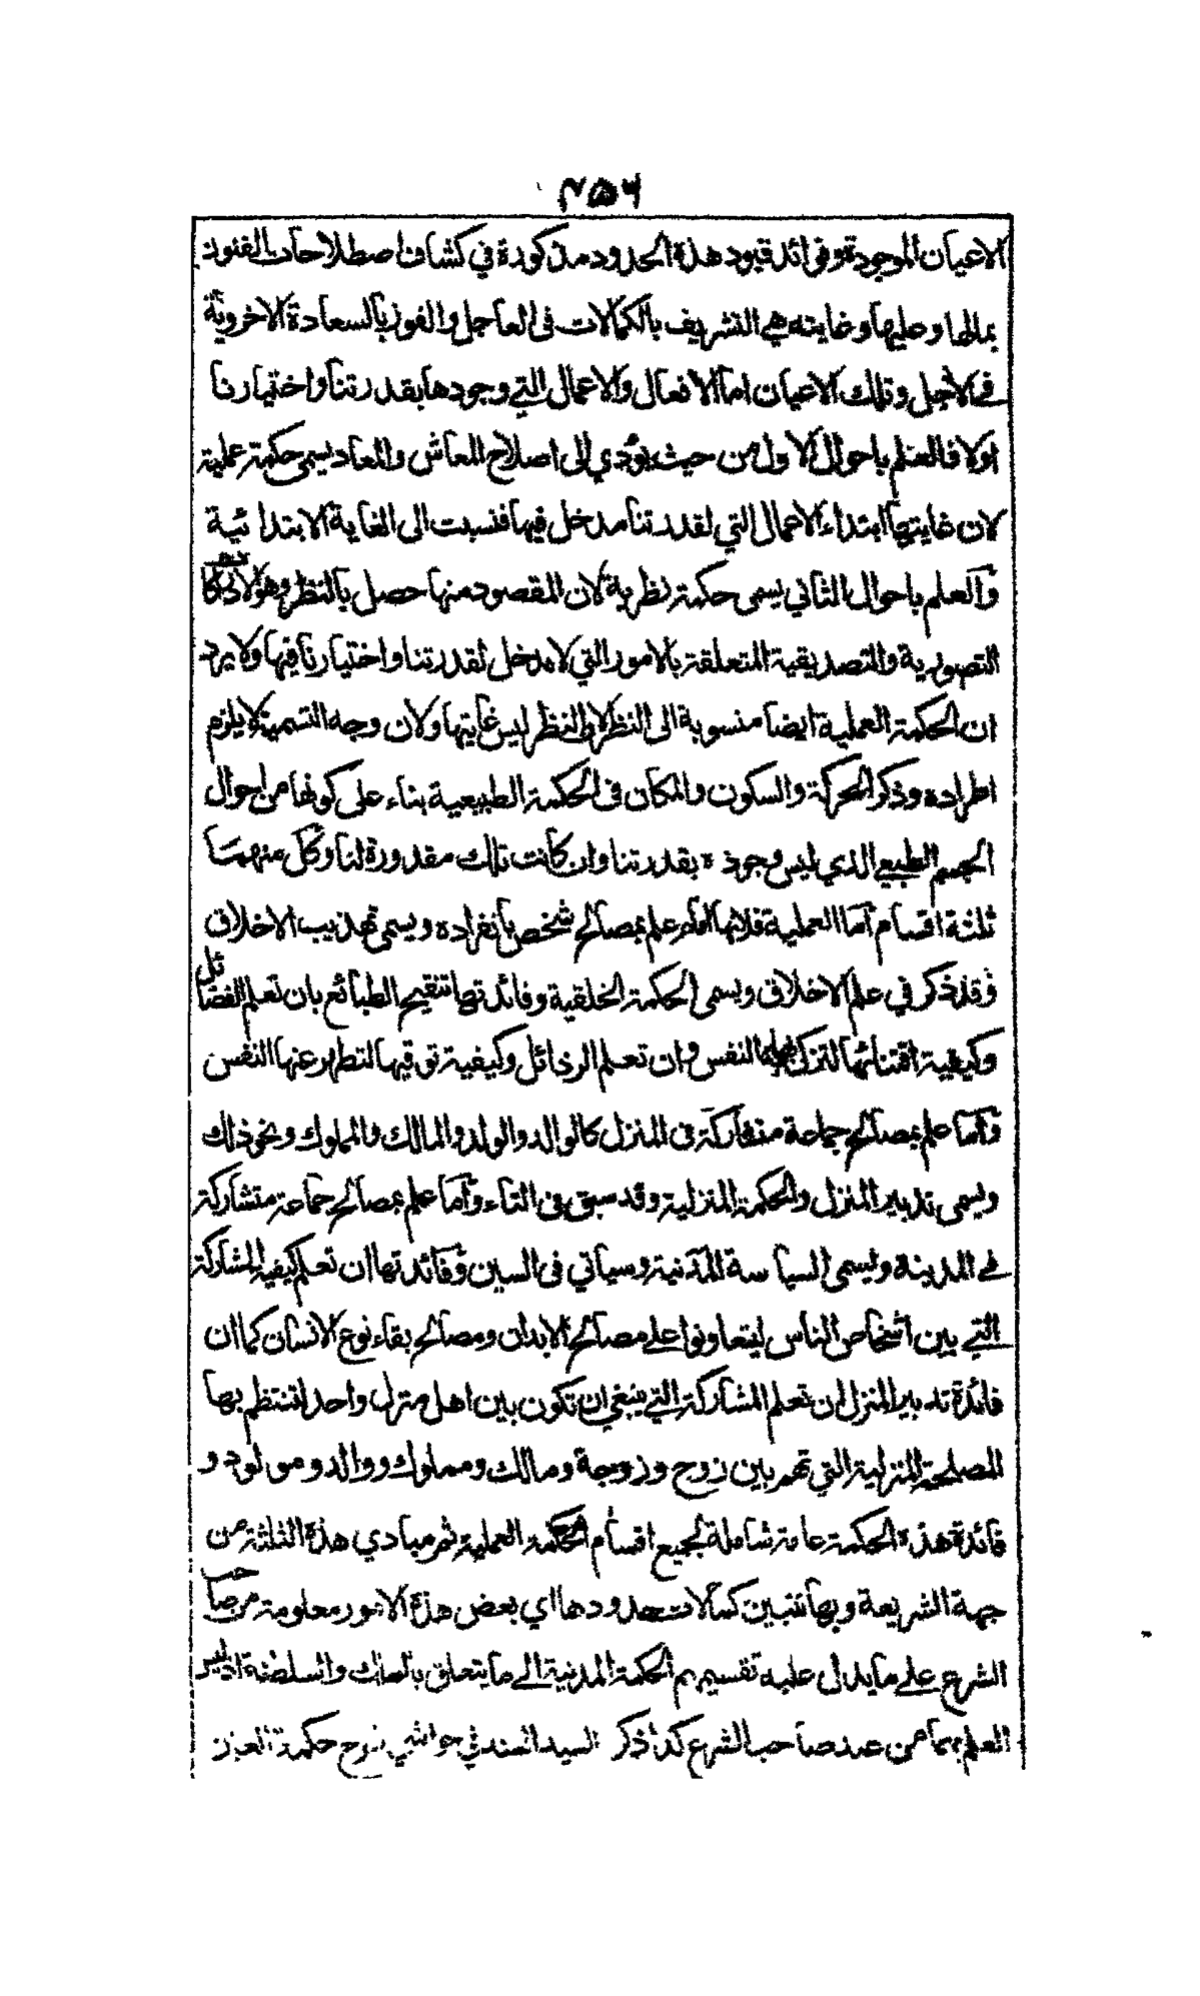 ۴۵۶
الاعيان الموجودة وفوائد قيود هذه الحدود مذكورة في كشاف اصطلاحات الفنون
بمالها وعليها وغايته هي التشريف بالكمالات فى العاجل والفوز بالسعادة الاخروية
فى الاجل وتلك الاعيان اما الافعال والاعمال التي وجودها بقدرتنا واختيارنا
اولا فالعلم باحوال الاول من حيث يؤدي الى اصلاح المعاش والمعاد يسمى حكمة عملية
لان غايتها ابتداء الاعمال التي لقدرتنا مدخل فيها فنسبت الى الغاية الابتدائية
والعلم باحوال الثاني يسمى حكمة نظرية لان المقصود منها حصل بالنظر وهو الادراكات
التصورية والتصديقية المتعلقة بالامور التي لا مدخل لقدرتنا واختيارنا فيها ولا يرد
ان الحكمة العملية ايضا منسوبة الى النظر لان النظر ليس غايتها ولان وجه التسمية لا يلزم
اطراده وذكر الحركة والسكون والمكان فى الحكمة الطبيعية بناء على كونها من احوال
الجسم الطبيعي الذي ليس وجوده بقدرتنا وان كانت تلك مقدورة لنا وكل منهما
ثلثة اقسام اما العملية فلانها اما علم بمصالح شخص بانفراده ويسمى تهذيب الاخلاق
وقد ذكر في علم الاخلاق ويسمى الحكمة الخلقية وفائدتها تنقيح الطبائع بان تعلم الفضائل
وكيفية اقتنائها لتزكى بها النفس وان تعلم الرذائل وكيفية توقيها لتطهر عنها النفس
واما علم بمصالح جماعة متشاركة فى المنزل كالوالد والولد والمالك والمملوك ونحو ذلك
ويسمى تدبير المنزل والحكمة المنزلية وقد سبق فى التاء واما علم بمصالح جماعة متشاركة
فى المدينة ويسمى السياسة المدنية وسيأتي فى السين وفائدتها ان تعلم كيفية المشاركة
التي بين اشخاص الناس ليتعاونوا على مصالح الابدان ومصالح بقاء نوع الانسان كما ان
فائدة تدبير المنزل ان تعلم المشاركة التي ينبغي ان تكون بين اهل منزل واحد لتنتظم بها
المصلحة المنزلية التي تتم بين زوج وزوجة ومالك ومملوك ووالد ومولود و
فائدة هذه الحكمة عامة شاملة لجميع اقسام الحكمة العملية ثم مبادي هذه الثلثة من
جهة الشريعة وبها تتبين كمالات حدودها اي بعض هذه الامور معلومة من صاحب
الشرع على ما يدل عليه تقسيمهم الحكمة المدنية الى ما يتعلق بالملك والسلطنة اذ ليس
العلم بهما من عند صاحب الشرع كذا ذكر السيد السند في حواشي شرح حكمة العين